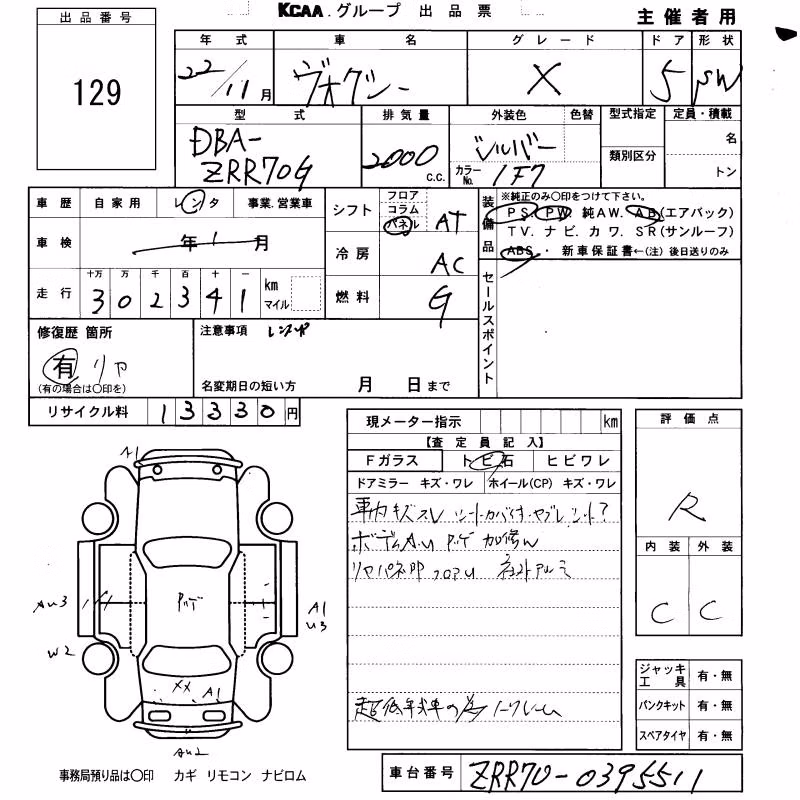 KCAA.グループ 出品票
主催者用
出品番号
129
年式 車名 グレード ドア 形状
22/11月 ヴォクシー X 5 SW
型式 排気量 外装色 色替 型式指定 定員・積載
DBA-ZRR70G 2000 C.C. シルバー 名
類別区分
カラーNo. 1F7 トン
車歴 自家用 レンタ 事業.営業車
シフト フロア コラム パネル AT
装備品 ※純正のみ○印をつけて下さい。
PS. PW. 純AW. AB(エアバック)
TV. ナビ. カワ. SR(サンルーフ)
ABS ・ 新車保証書←(注) 後日送りのみ
車検 年 1 月
冷房 AC
走行 十万 万 千 百 十 一
302341 km マイル
燃料 G
セールスポイント
修復歴 箇所
有 リア
(有の場合は○印を)
注意事項 レンタup
名変期日の短い方 月 日まで
リサイクル料 13330円
現メーター指示 km
評価点
R
【査定員記入】
Fガラス トビ石 ヒビワレ
ドアミラー キズ・ワレ ホイール(CP) キズ・ワレ
内装 外装
C C
ボデーA.U
リヤパネ
超低年式車の為 ノークレーム
A1
AU3
A1
U3
W2
XX A1
AU2
ジャッキ工具 有・無
パンクキット 有・無
スペアタイヤ 有・無
事務局預り品は○印 カギ リモコン ナビロム
車台番号 ZRR70-0395511